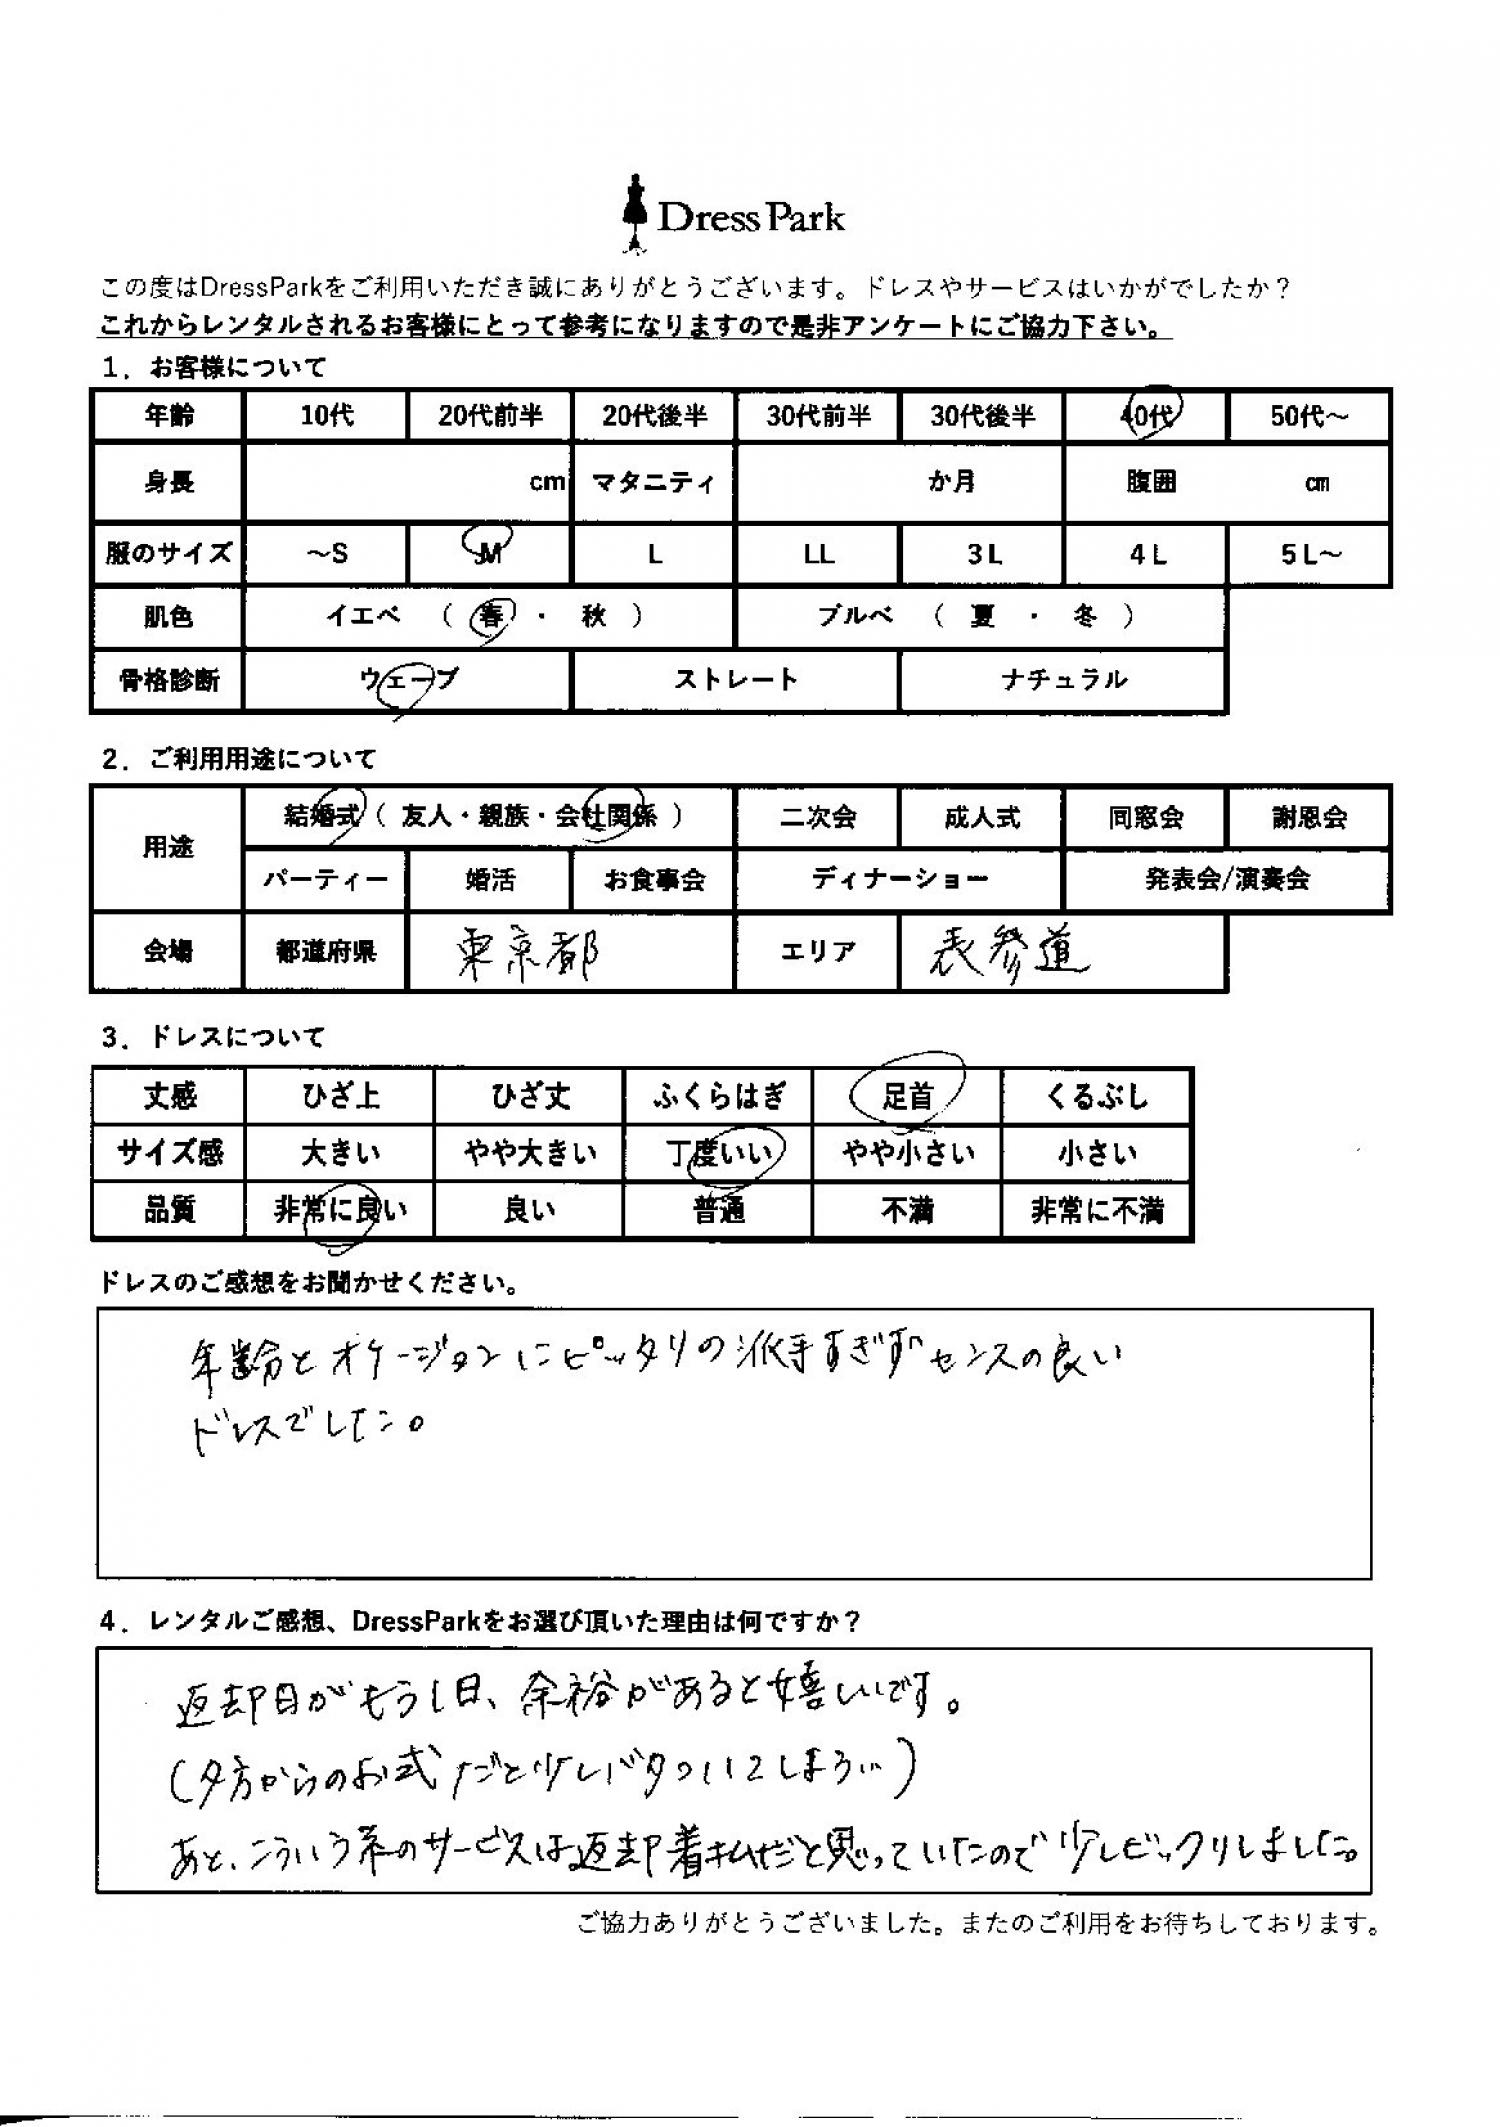 Dress Park
この度はDressParkをご利用いただき誠にありがとうございます。ドレスやサービスはいかがでしたか？
これからレンタルされるお客様にとって参考になりますので是非アンケートにご協力下さい。
1．お客様について
年齢 10代 20代前半 20代後半 30代前半 30代後半 40代 50代～
身長 cm マタニティ か月 腹囲 cm
服のサイズ ～S M L LL 3L 4L 5L～
肌色 イエベ （ 春 ・ 秋 ） ブルベ （ 夏 ・ 冬 ）
骨格診断 ウェーブ ストレート ナチュラル
2．ご利用用途について
用途 結婚式（ 友人・親族・会社関係 ） 二次会 成人式 同窓会 謝恩会
パーティー 婚活 お食事会 ディナーショー 発表会/演奏会
会場 都道府県 東京都 エリア 表参道
3．ドレスについて
丈感 ひざ上 ひざ丈 ふくらはぎ 足首 くるぶし
サイズ感 大きい やや大きい 丁度いい やや小さい 小さい
品質 非常に良い 良い 普通 不満 非常に不満
ドレスのご感想をお聞かせください。
年齢とオケージョンにピッタリの派手すぎずセンスの良い
ドレスでした。
4．レンタルご感想、DressParkをお選び頂いた理由は何ですか？
返却日がもう1日、余裕があると嬉しいです。
（夕方からのお式だと少しバタついてしまう…）
あと、こういう系のサービスは返却着払だと思っていたので少しビックリしました。
ご協力ありがとうございました。またのご利用をお待ちしております。